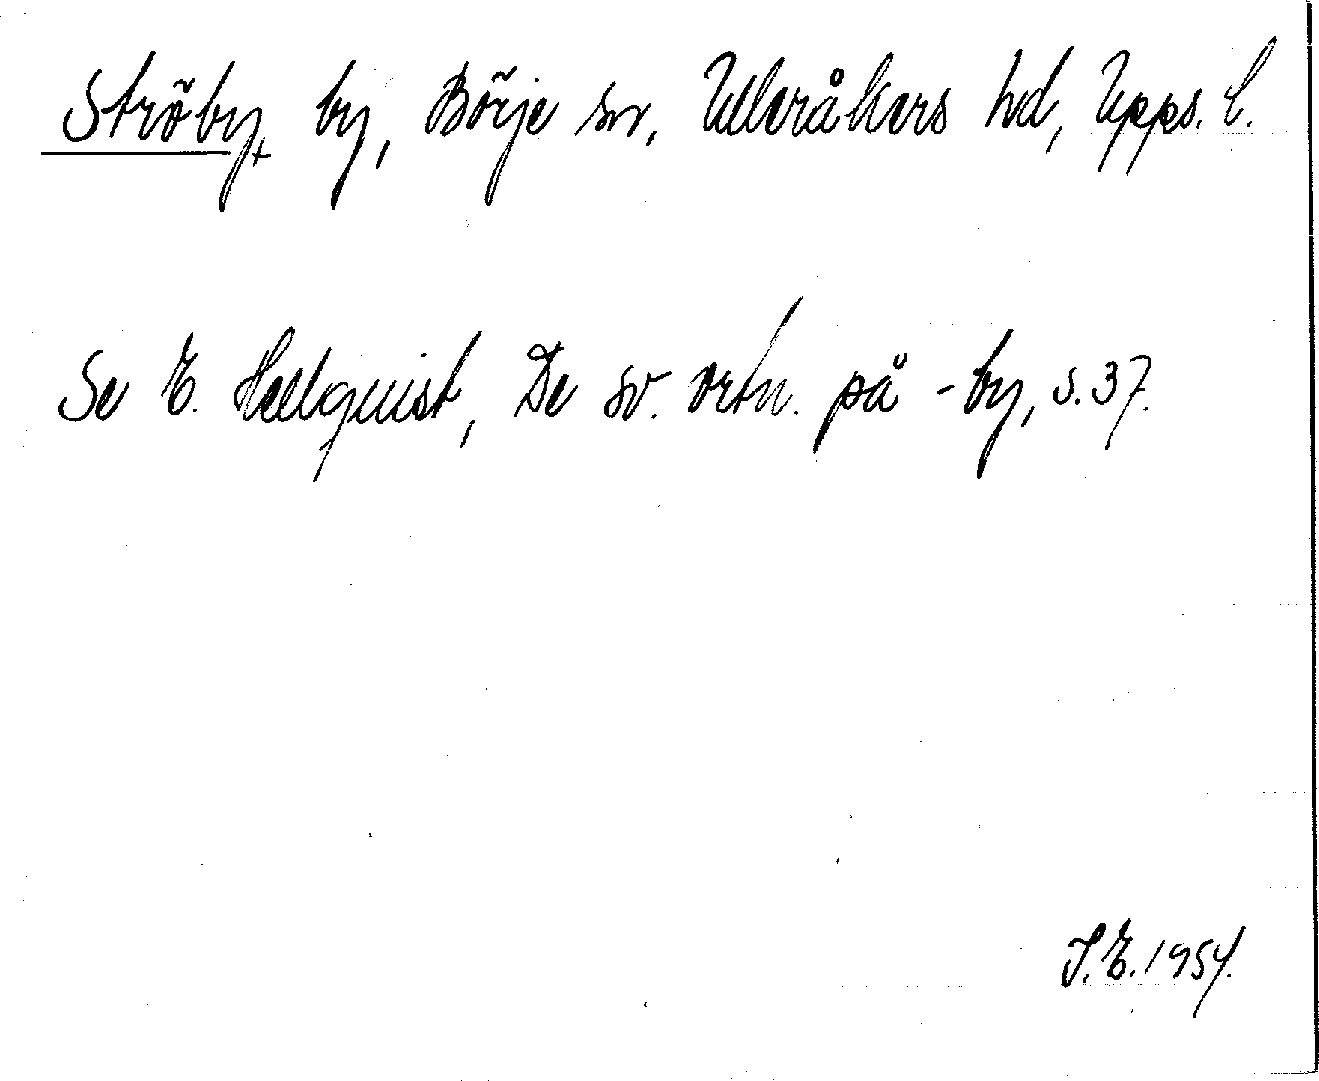 Ströby, by, Börje sn, Ulleråkers hd, Upps. l.
Se E. Hellquist, De sv. ortn. på -by, s. 37.
I.E. 1954.